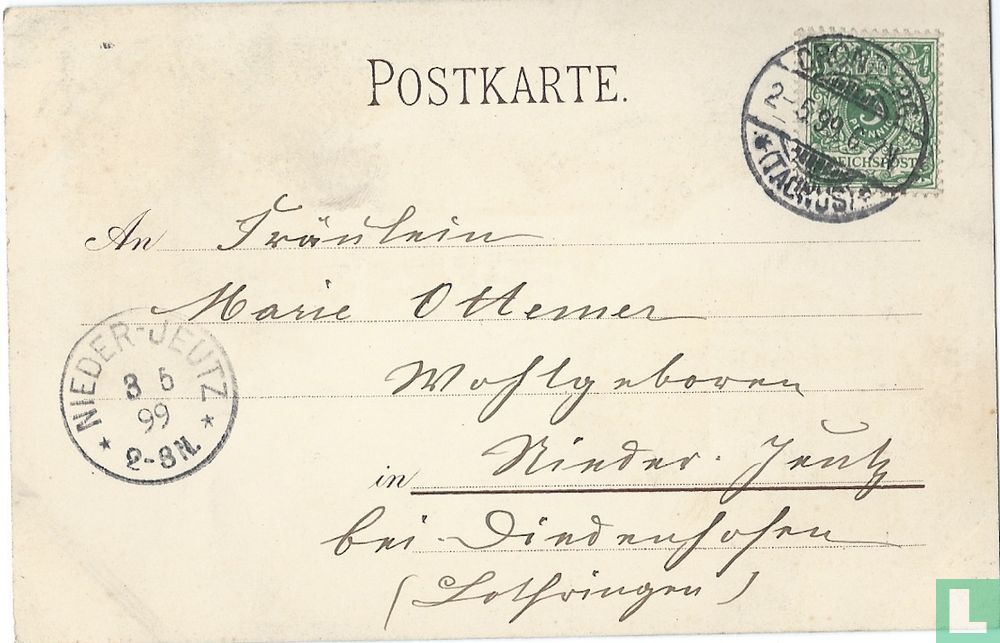 POSTKARTE.
CRONBERG
2-5 99
5
PFENNIG
REICHSPOST
(TAUNUS)
An Fräulein
Marie Ottemer
Wohlgeboren
in Nieder-Jeutz
bei Diedenhofen
(Lothringen)
NIEDER-JEUTZ
3 5
99
2-3N.
L